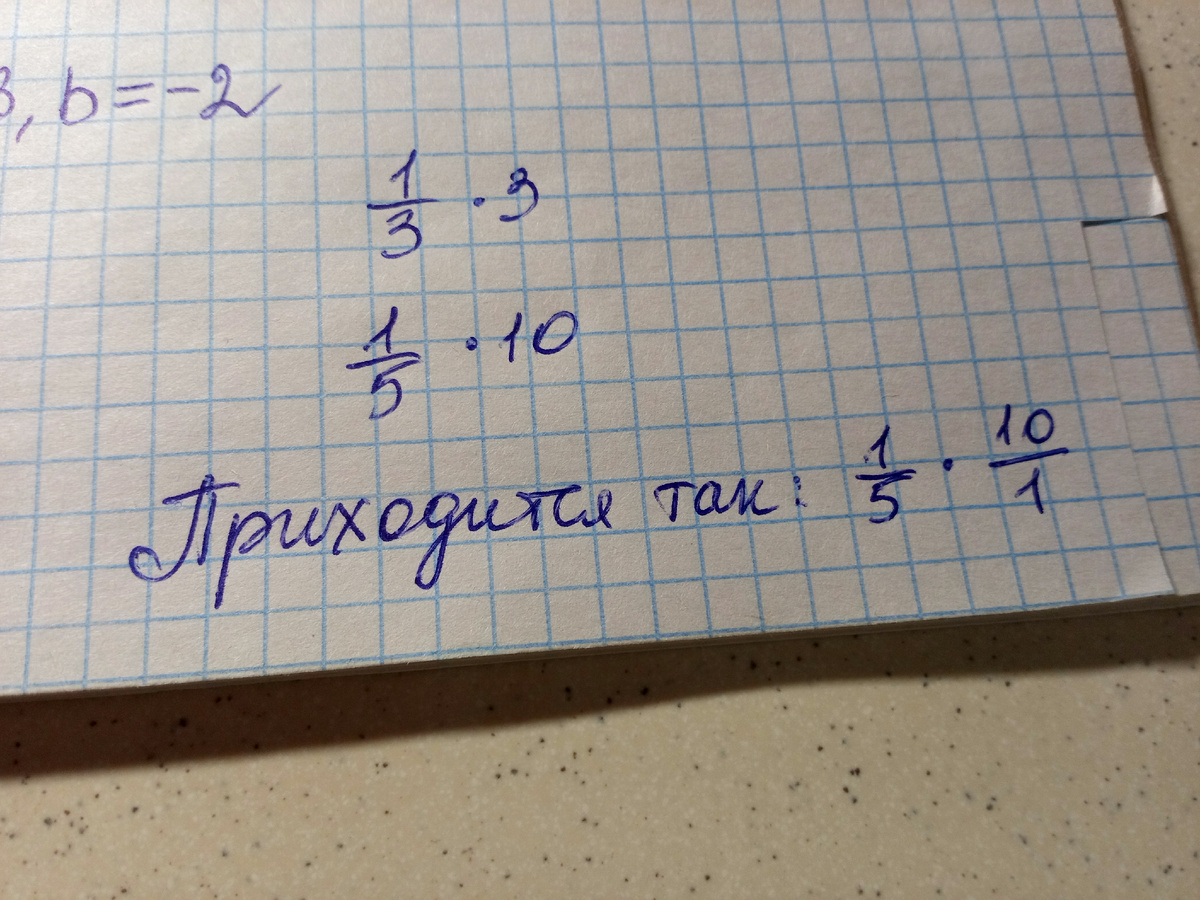 3, b = -2
1/3 · 3
1/5 · 10
Приходится так: 1/5 · 10/1